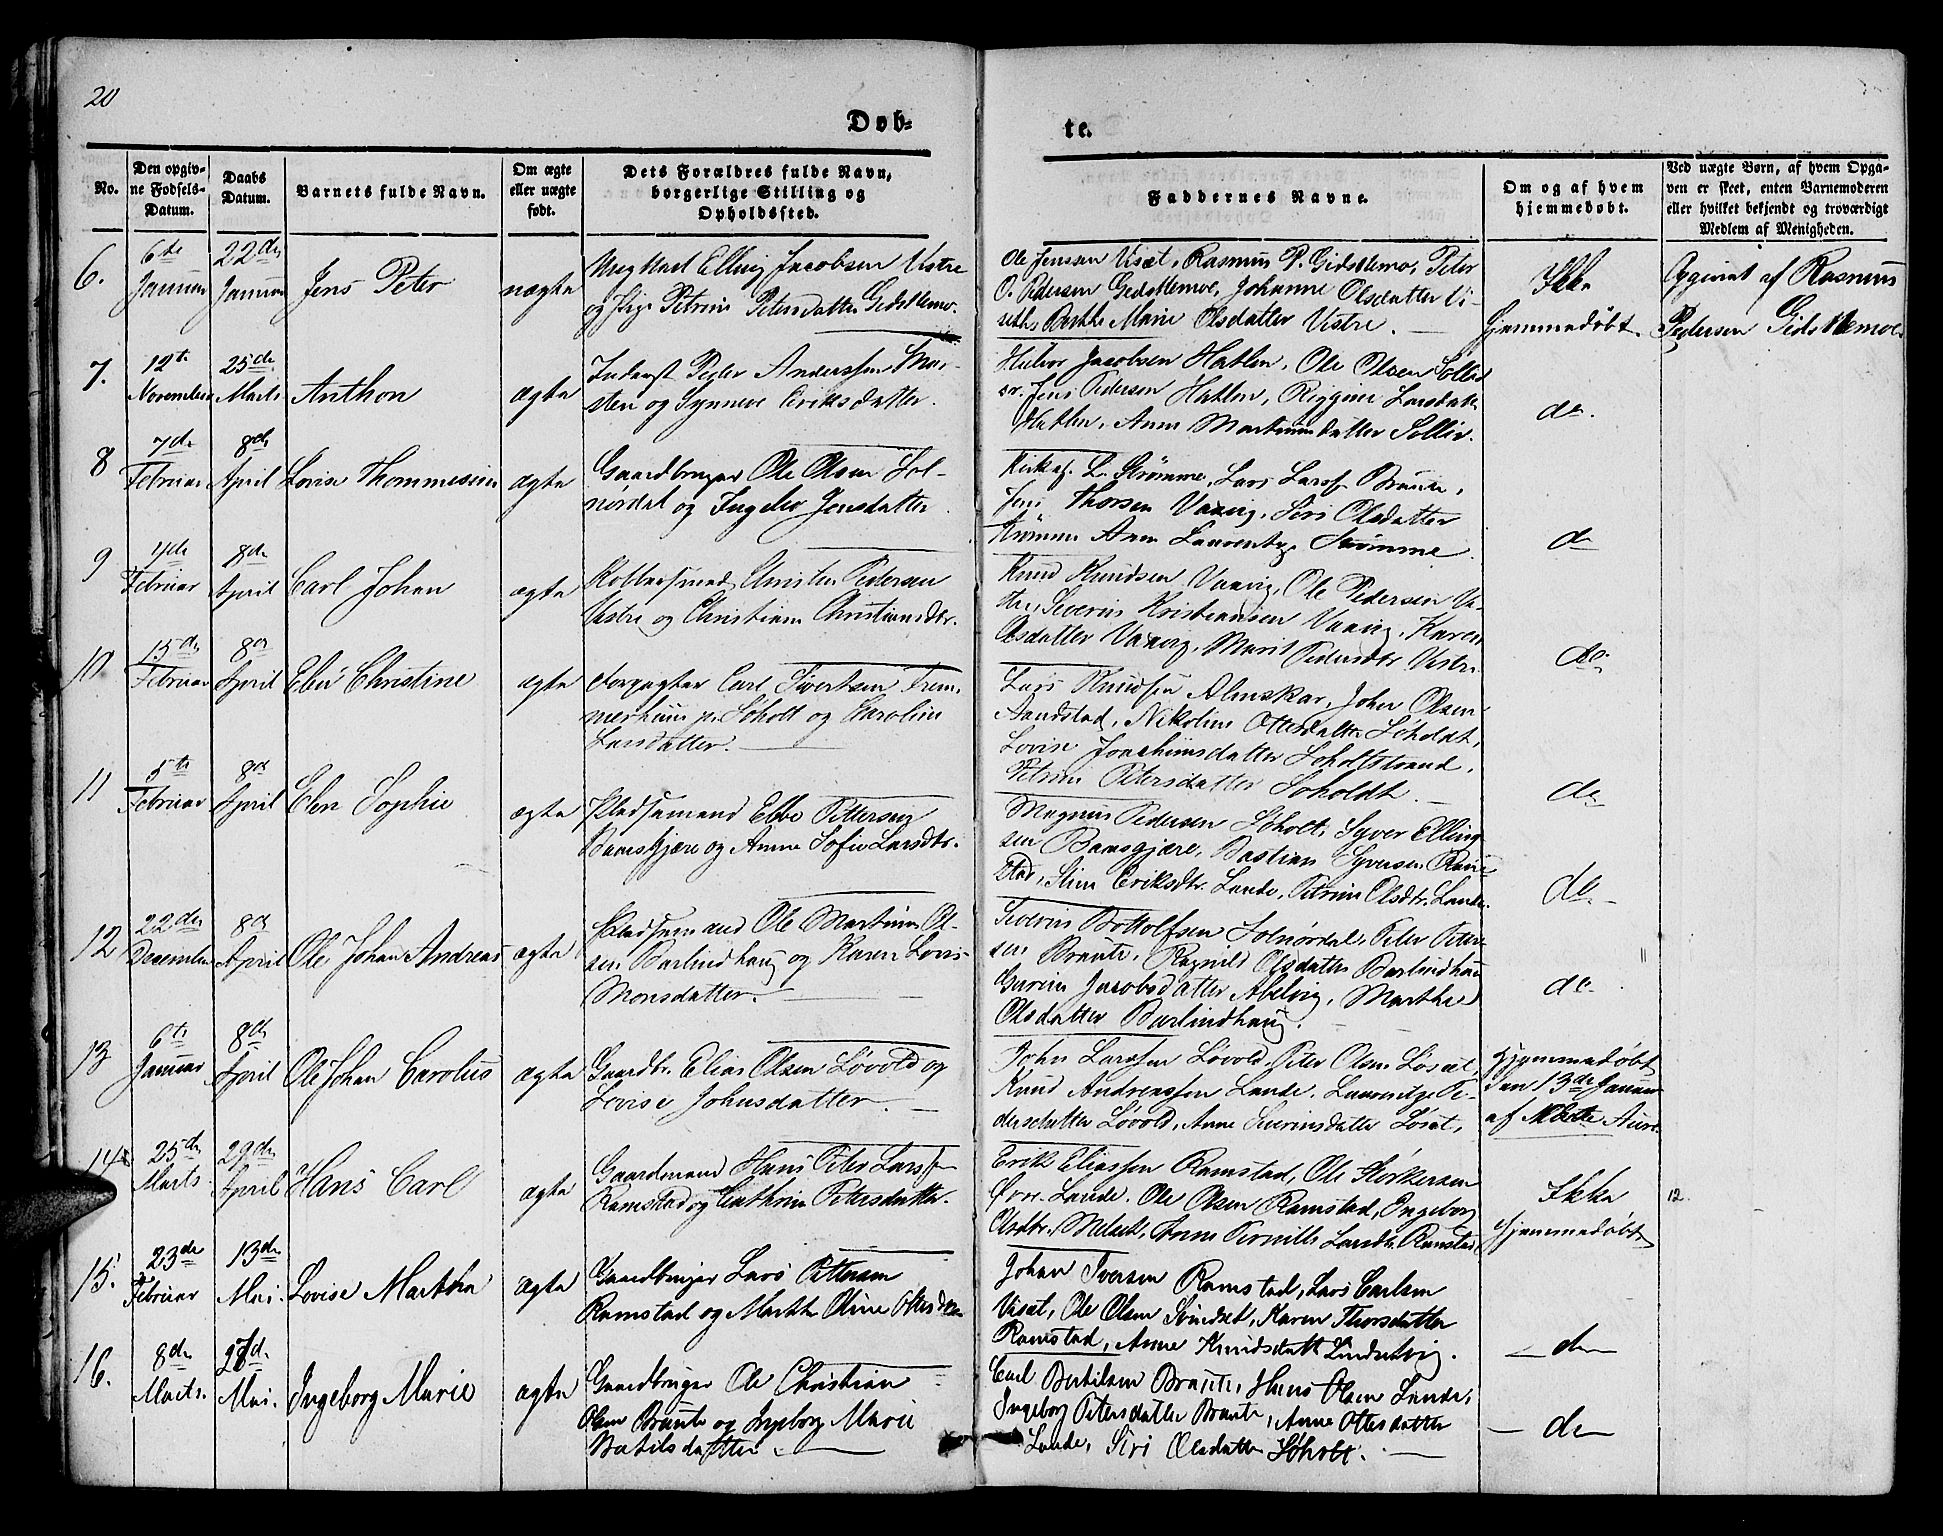 20
Døb-
te.
No.
Den opgiv-
ne Fødsels-
Datum.
Daabs
Datum.
Barnets fulde Navn.
Om ægte
eller uægte
født.
Dets Forældres fulde Navn,
borgerlige Stilling og
Opholdssted.
Faddernes Navne.
Om og af hvem
hjemmedøbt.
Ved uægte Børn, af hvem Opga-
ven er skeet, enten Barnemoderen
eller hvilket bekjendt og troværdigt
Medlem af Menigheden.
6.
6te
Januar
22de
Januar
Jens Peter
uægte
Ungkarl Elling Jacobsen Vestre
og Pige Petrine Petersdatter Gidskemo.
Ole Jenssen Viset, Rasmus P. Gidskemo, Peter
O. Pedersen Gidskemoe, Johanne Olsdatter Vi-
seth, Berthe Marie Olsdatter Vestre.
Ikke
hjemmedøbt.
Opgivet af Rasmus
Pedersen Gidskemoe
7.
12te
November
25de
Marts
Anthon
ægte
Inderst Peder Anderssen
og Synneve Eriksdatter.
Jacobsen Hatlen, Ole Olsen
Jens Pedersen Hatlen, Larsdatter
Hatlen, Anne Martinusdatter
do.
8
7de
Februar
8de
April
Lovise Thommesine
ægte
Gaardbruger Ole Olsen Sol-
nørdal og Ingebor Jensdatter
L. Strømme, Lars Larss. Braute,
Jens Thorsen Vaavig, Siri Olsdatter
Strømme
do
9
4de
Februar
8de
April
Carl Johan
ægte
Kobbersmed Christen Pedersen
Vestre og Christiane Christiansdtr.
Knud Knudsen Vaavig, Ole Pedersen Ve-
stre, Severin Kristiansen Vaavig, Karen
Olsdatter Vaavig, Marit Pedersdtr Vestre
do.
10
15de
Februar
8de
April
Elen Christine
ægte
Forpagter Carl Ivertsen Frem-
merheim p. Søholt og Karoline
Larsdatter.
Lars Knudsen Almskar, John Olsen
Aandstad, Nikoline Ottesdatter Søholdt,
Lovise Joachimsdatter Søholtstrand,
Petrine Petersdatter Søholdt.
do
11
5te
Februar
8de
April
Elen Sophie
ægte
Pladsemand Ebbe Pettersen
Bamsgjære og Anne Sofie Larsdtr.
Magnus Pedersen Søholt, Syver Elling-
sen Bamsgjære, Bastian Syversen
Stine Eriksdtr. Lande, Petrine Olsdtr. Lande.
do.
12
22de
December
8de
April
Ole Johan Andreas
ægte
Pladsemand Ole Martinus Ol-
sen Barlindhaug og Karen Lovise
Monsdatter.
Severin Bottolfsen Solnørdal, Peter Peter-
sen Braute, Ragnild Olsdatter Barlindhau
Jacobsdatter Abelvig, Marthe
Olsdatter Barlindhaug.
do.
13
6te
Januar
8de
April
Ole Johan Carolus
ægte
Gaardbr. Elias Olsen Løvold og
Lovise Johnsdatter.
John Larssen Løvold, Peter Olsen Løset,
Knud Andreassen Lande, Pe-
dersdatter Løvold, Anne Severinsdatter Løset,
Hjemmedøbt
den 13de Januar
af
14
25de
Marts
29de
April
Hans Carl
ægte
Gaardmand Hans Peter Larssen
Ramstad og Cathrine Petersdatter.
Erik Eliassen Ramstad, Ole Størkersen
Øvr. Lande, Ole Olsen Ramstad, Ingeborg
Olsdtr. Melseth, Anne Pernille Larsdtr. Ramstad
Ikke
hjemmedøbt
12.
15.
23de
Februar
13de
Mai.
Lovise Marthea
ægte
Gaardbruger Lars Pettersen
Ramstad og Marthe Oline
Johan Iversen Ramstad, Lars Carlsen
Viset, Ole Olsen Svindset, Karen Thorsdatter
Ramstad, Anne Knudsdatter
do
16.
8de
Marts.
27de
Mai.
Ingeborg Marie
ægte
Gaardbruger Ole Christian
Olsen Braute og Ingeborg Marie
Bertilsdatter
Carl Bertilsen Braute, Hans Olsen Lande,
Ingeborg Petersdatter Braute, Anne Ottesdatter
Lande, Siri Olsdatter Søholt.
do